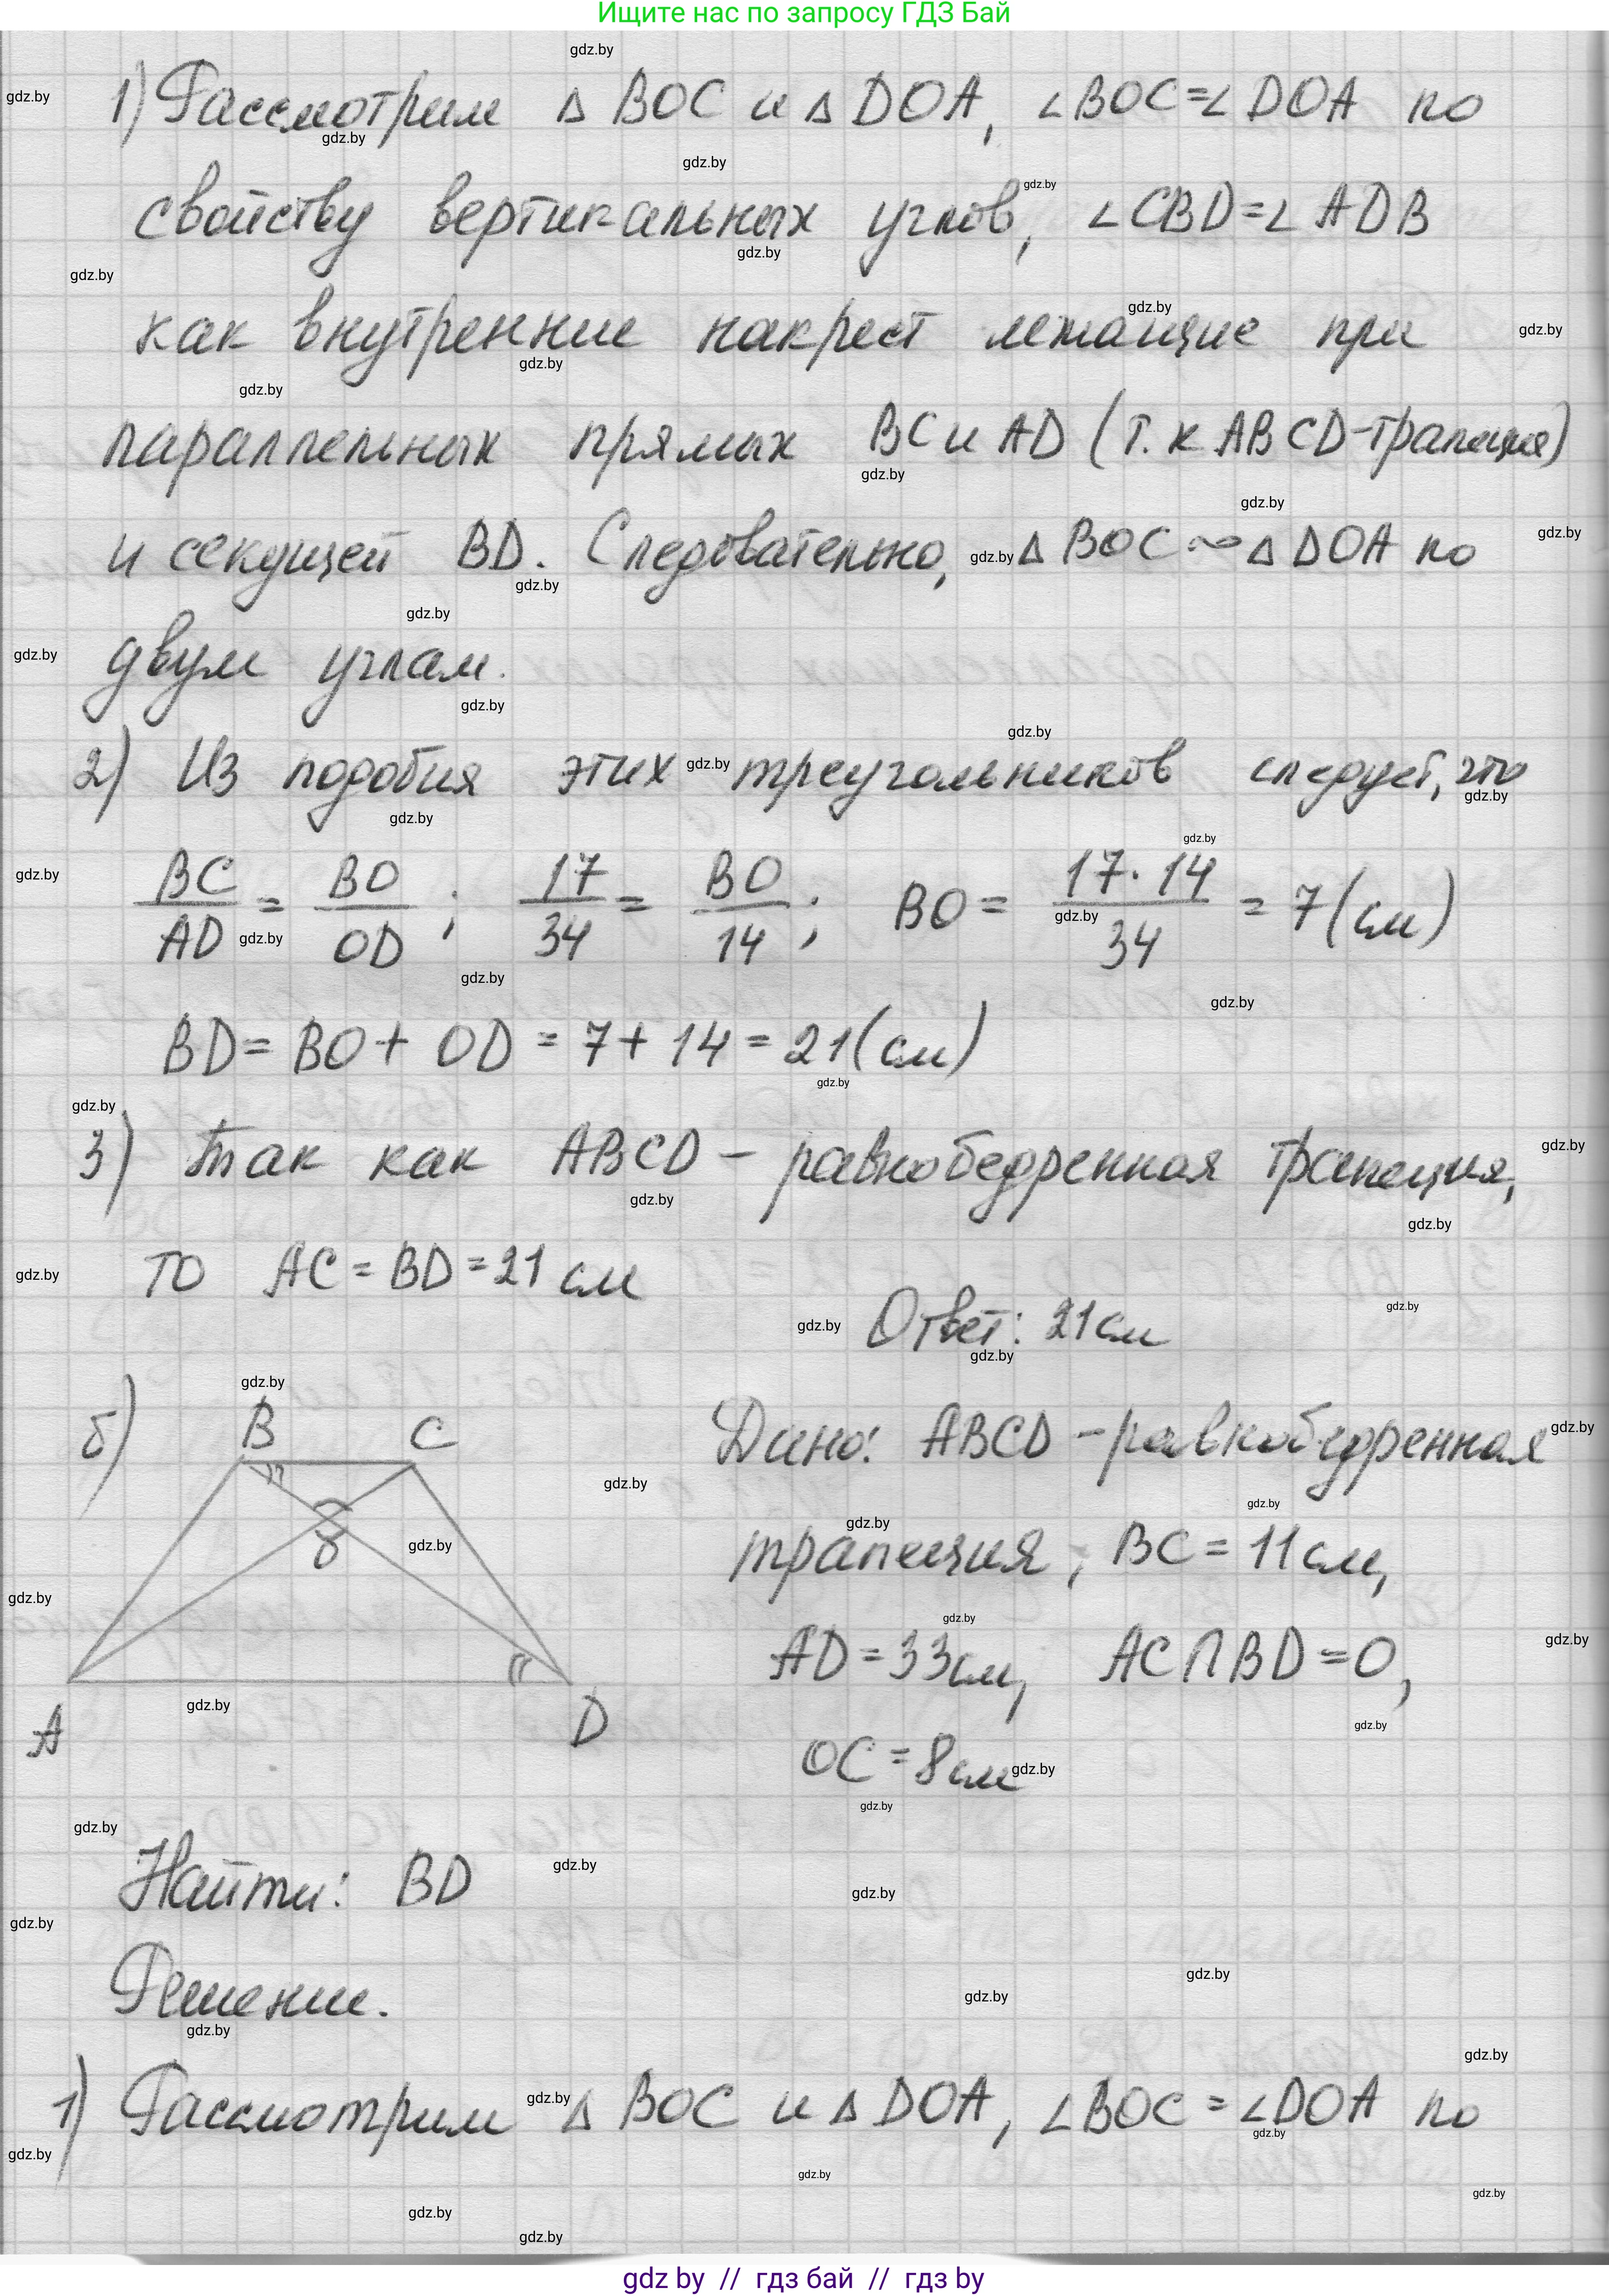 Ищите нас по запросу ГДЗ Бай
1) Рассмотрим △ BOC и △ DOA, ∠BOC=∠DOA по
свойству вертикальных углов, ∠CBD=∠ADB
как внутренние накрест лежащие при
параллельных прямых BC и AD (т.к ABCD-трапеция)
и секущей BD. Следовательно, △ BOC ∾ △ DOA по
двум углам.
2) Из подобия этих треугольников следует, что
BC/AD = BO/OD; 17/34 = BO/14; BO = 17·14/34 = 7(см)
BD= BO+ OD = 7+ 14 = 21(см)
3) Так как ABCD - равнобедренная трапеция,
то AC = BD = 21 см
Ответ: 21см
б) B C
Дано: ABCD - равнобедренная
8
трапеция, BC = 11см,
AD = 33см, AC∩BD=O,
A D
OC = 8см
Найти: BD
Решение.
1) Рассмотрим △ BOC и △ DOA, ∠BOC = ∠DOA по
gdz.by
gdz by // гдз бай // гдз by